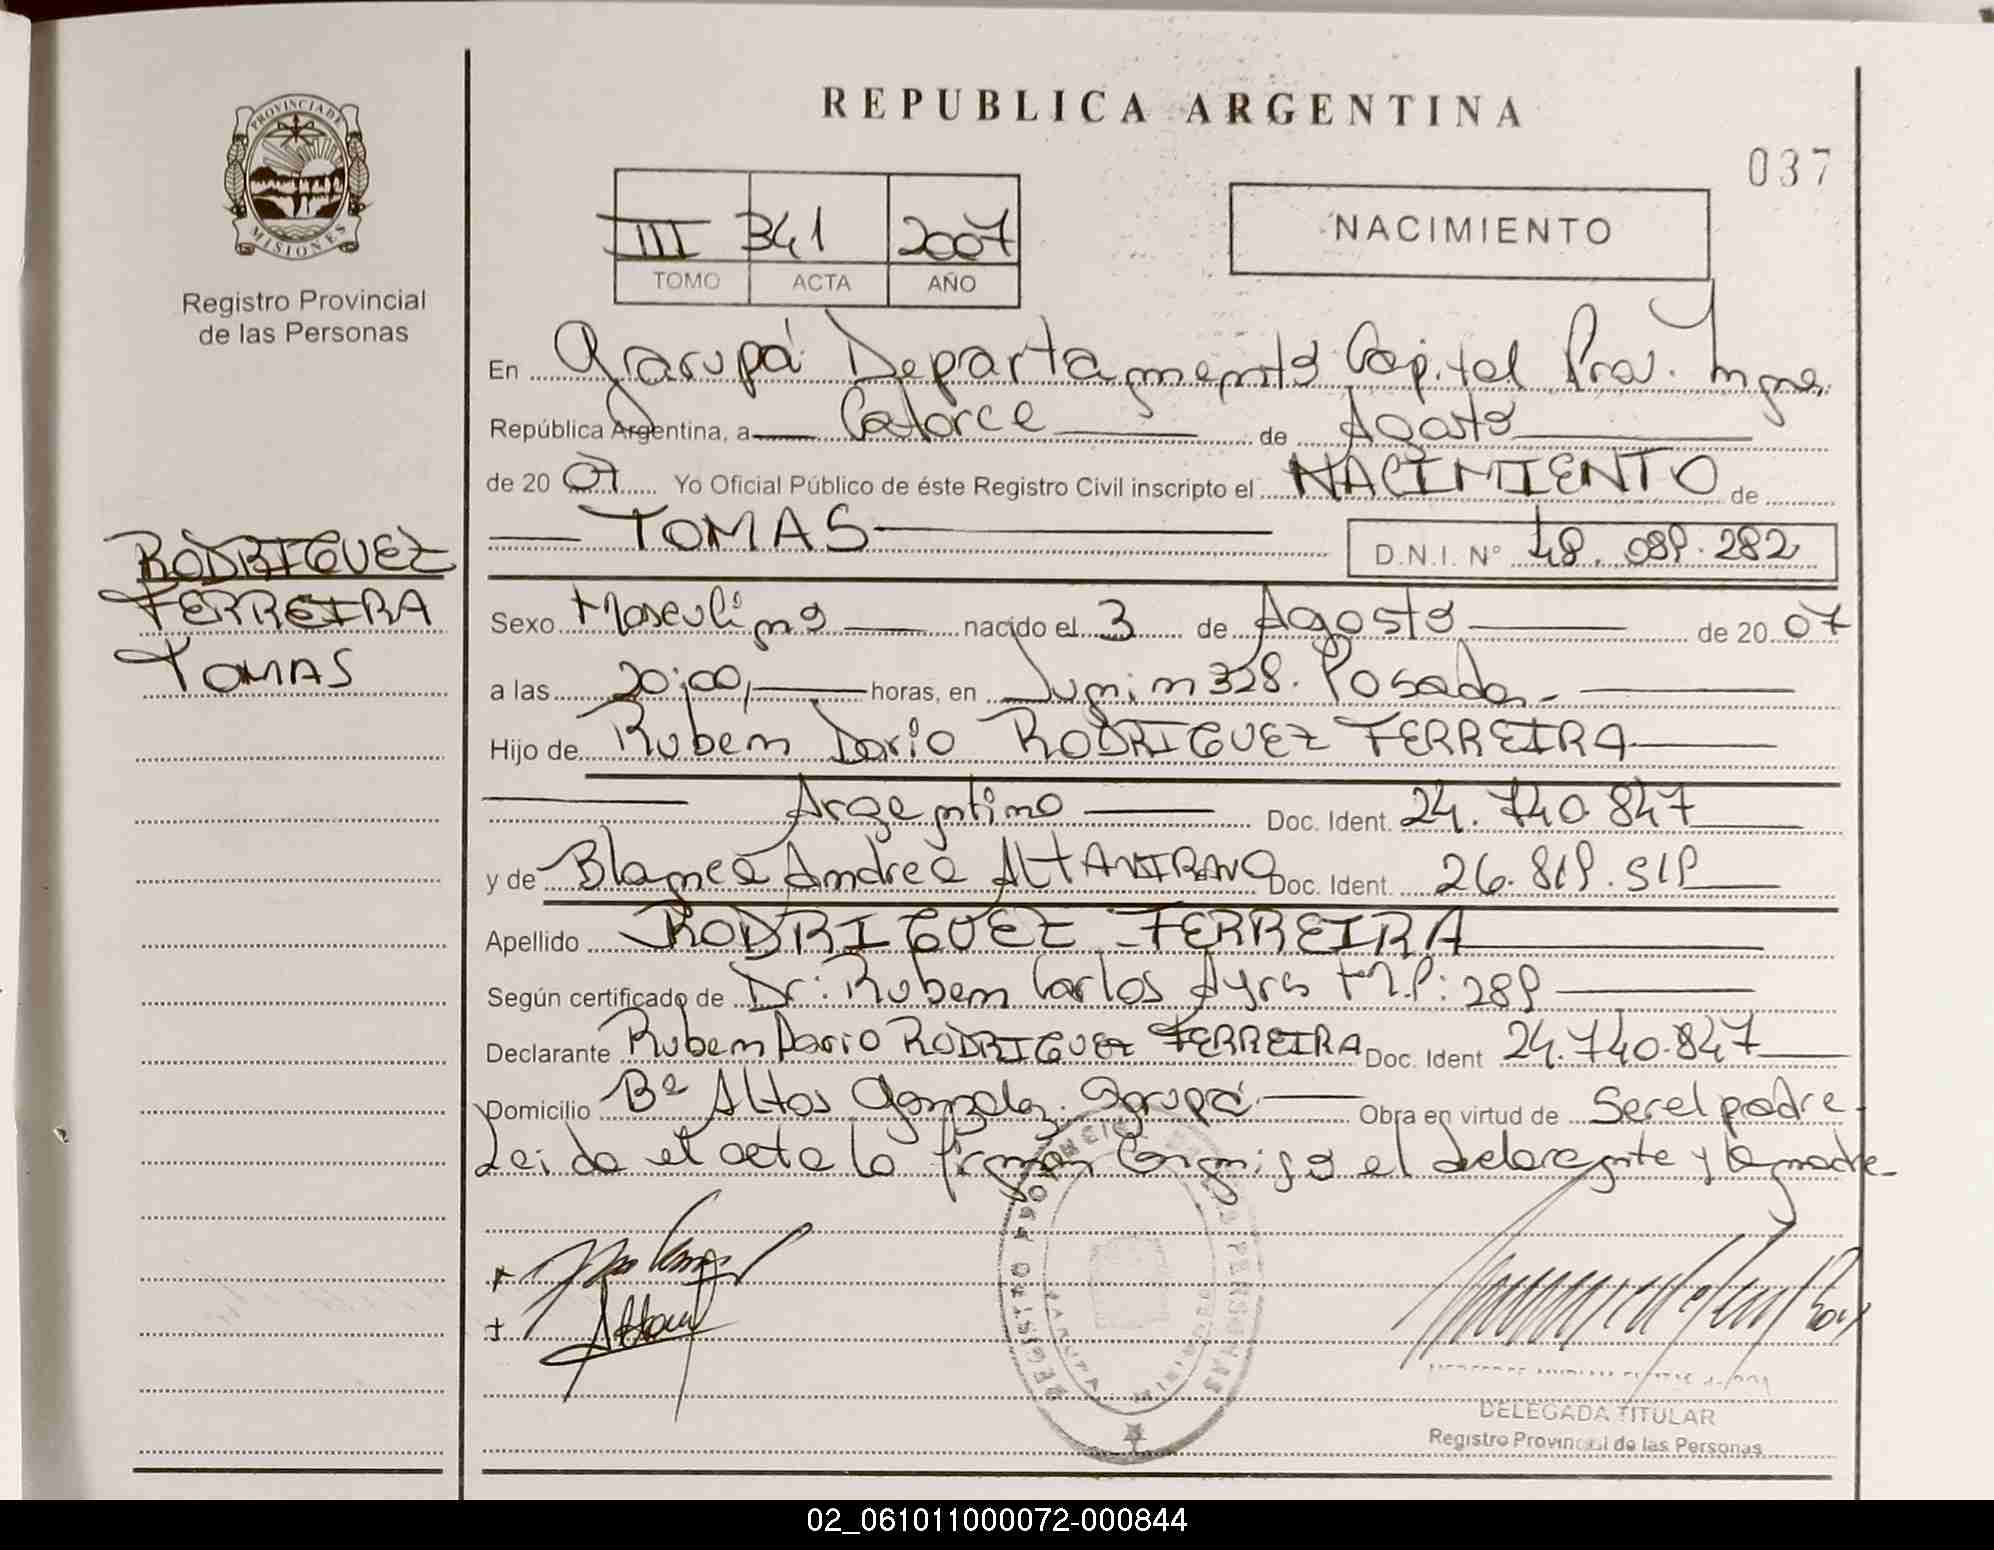 REPUBLICA ARGENTINA
037
PROVINCIA DE
MISIONES
Registro Provincial
de las Personas
III 341 2007
TOMO ACTA AÑO
NACIMIENTO
En Garupá Departamento Capital Prov. Mnes.
República Argentina, a Catorce de Agosto
de 20 07 Yo Oficial Público de éste Registro Civil inscripto el NACIMIENTO de
TOMAS D.N.I. N° 48.089.282
RODRIGUEZ
FERREIRA
TOMAS
Sexo Masculino nacido el 3 de Agosto de 20 07
a las 20:00, horas, en Junin 328. Posadas-
Hijo de Ruben Dario RODRIGUEZ FERREIRA
Argentino Doc. Ident. 24.740.847
y de Blanca Andrea ALTAMIRANO Doc. Ident. 26.819.519
Apellido RODRIGUEZ FERREIRA
Según certificado de Dr: Ruben Carlos Ayrs M.P: 289
Declarante Ruben Dario RODRIGUEZ FERREIRA Doc. Ident 24.740.847
Domicilio Bº Altos Gonzalez. Garupá Obra en virtud de Ser el padre-
Leida el acta la firman Conmigo el declarante y la madre-
REGISTRO PERSONAS
DELEGADA TITULAR
Registro Provincial de las Personas
02_061011000072-000844